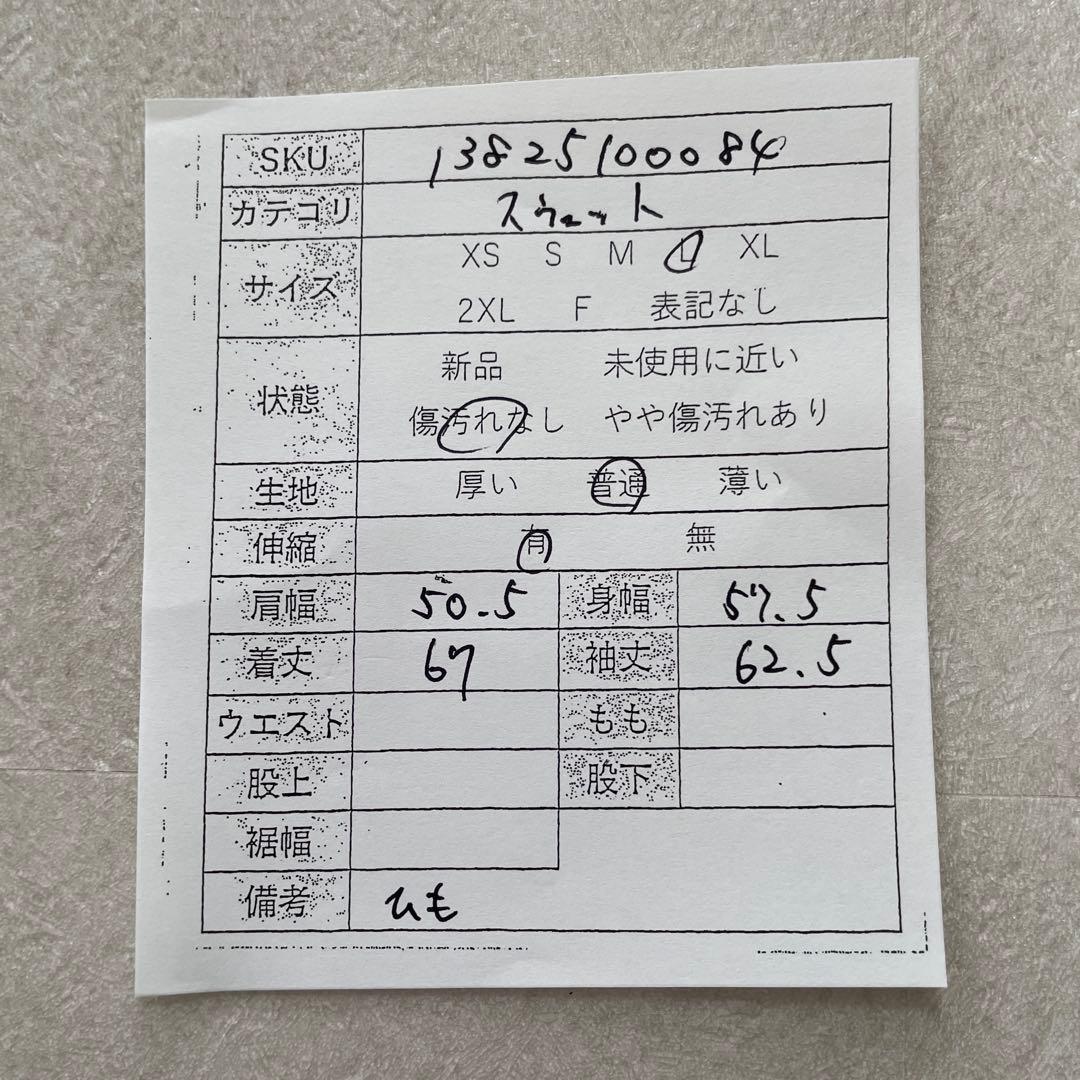 SKU 13825100084
カテゴリ スウェット
サイズ XS S M L XL
2XL F 表記なし
状態 新品 未使用に近い
傷汚れなし やや傷汚れあり
生地 厚い 普通 薄い
伸縮 有 無
肩幅 50.5 身幅 57.5
着丈 67 袖丈 62.5
ウエスト もも
股上 股下
裾幅
備考 ひも